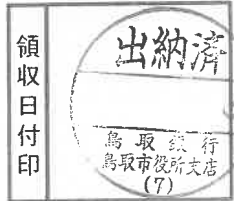 領収日付印
出納済
鳥取銀行
鳥取市役所支店
(7)